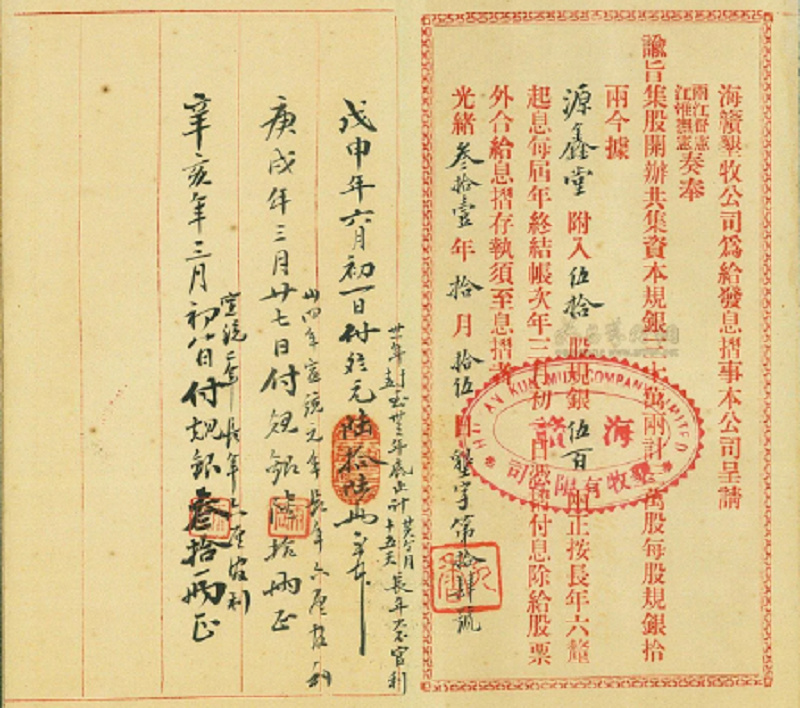 海贛墾牧公司爲給發息摺事本公司呈請
兩江督憲
江淮撫憲
奏奉
諭旨集股開辦共集資本規銀二十萬兩計二萬股每股規銀拾
兩今據
源鑫堂附入伍拾股規銀伍百兩正按長年六釐
起息每屆年終結帳次年三月初一日憑摺付息除給股票
外合給息摺存執須至息摺者
光緒叁拾壹年拾月拾伍日墾字第拾肆號
HAI KAN KUNG MUH COMPANY LIMITED
海贛
墾牧有限公司
戊申年六月初一日付
元陸拾陸兩
庚戌年三月廿七日付規銀陸拾兩正
卅四年宣統元年長年六厘官利
辛亥年三月初八日付規銀叁拾兩正
宣統二年長年六厘官利